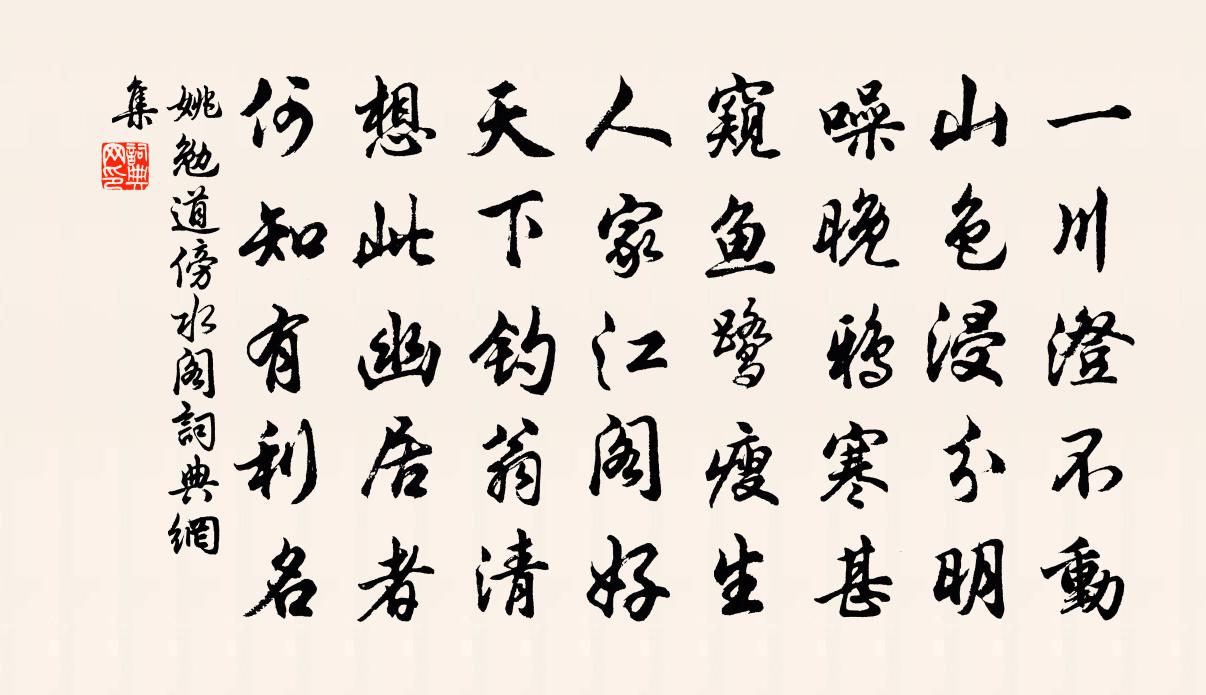 一川澄不動
山色浸分明
噪晚鴉寒甚
窺鱼鹭瘦生
人家江阁好
天下钓翁清
想此幽居者
何知有利名
姚勉道傍水阁詞典網
集
詞典
网印